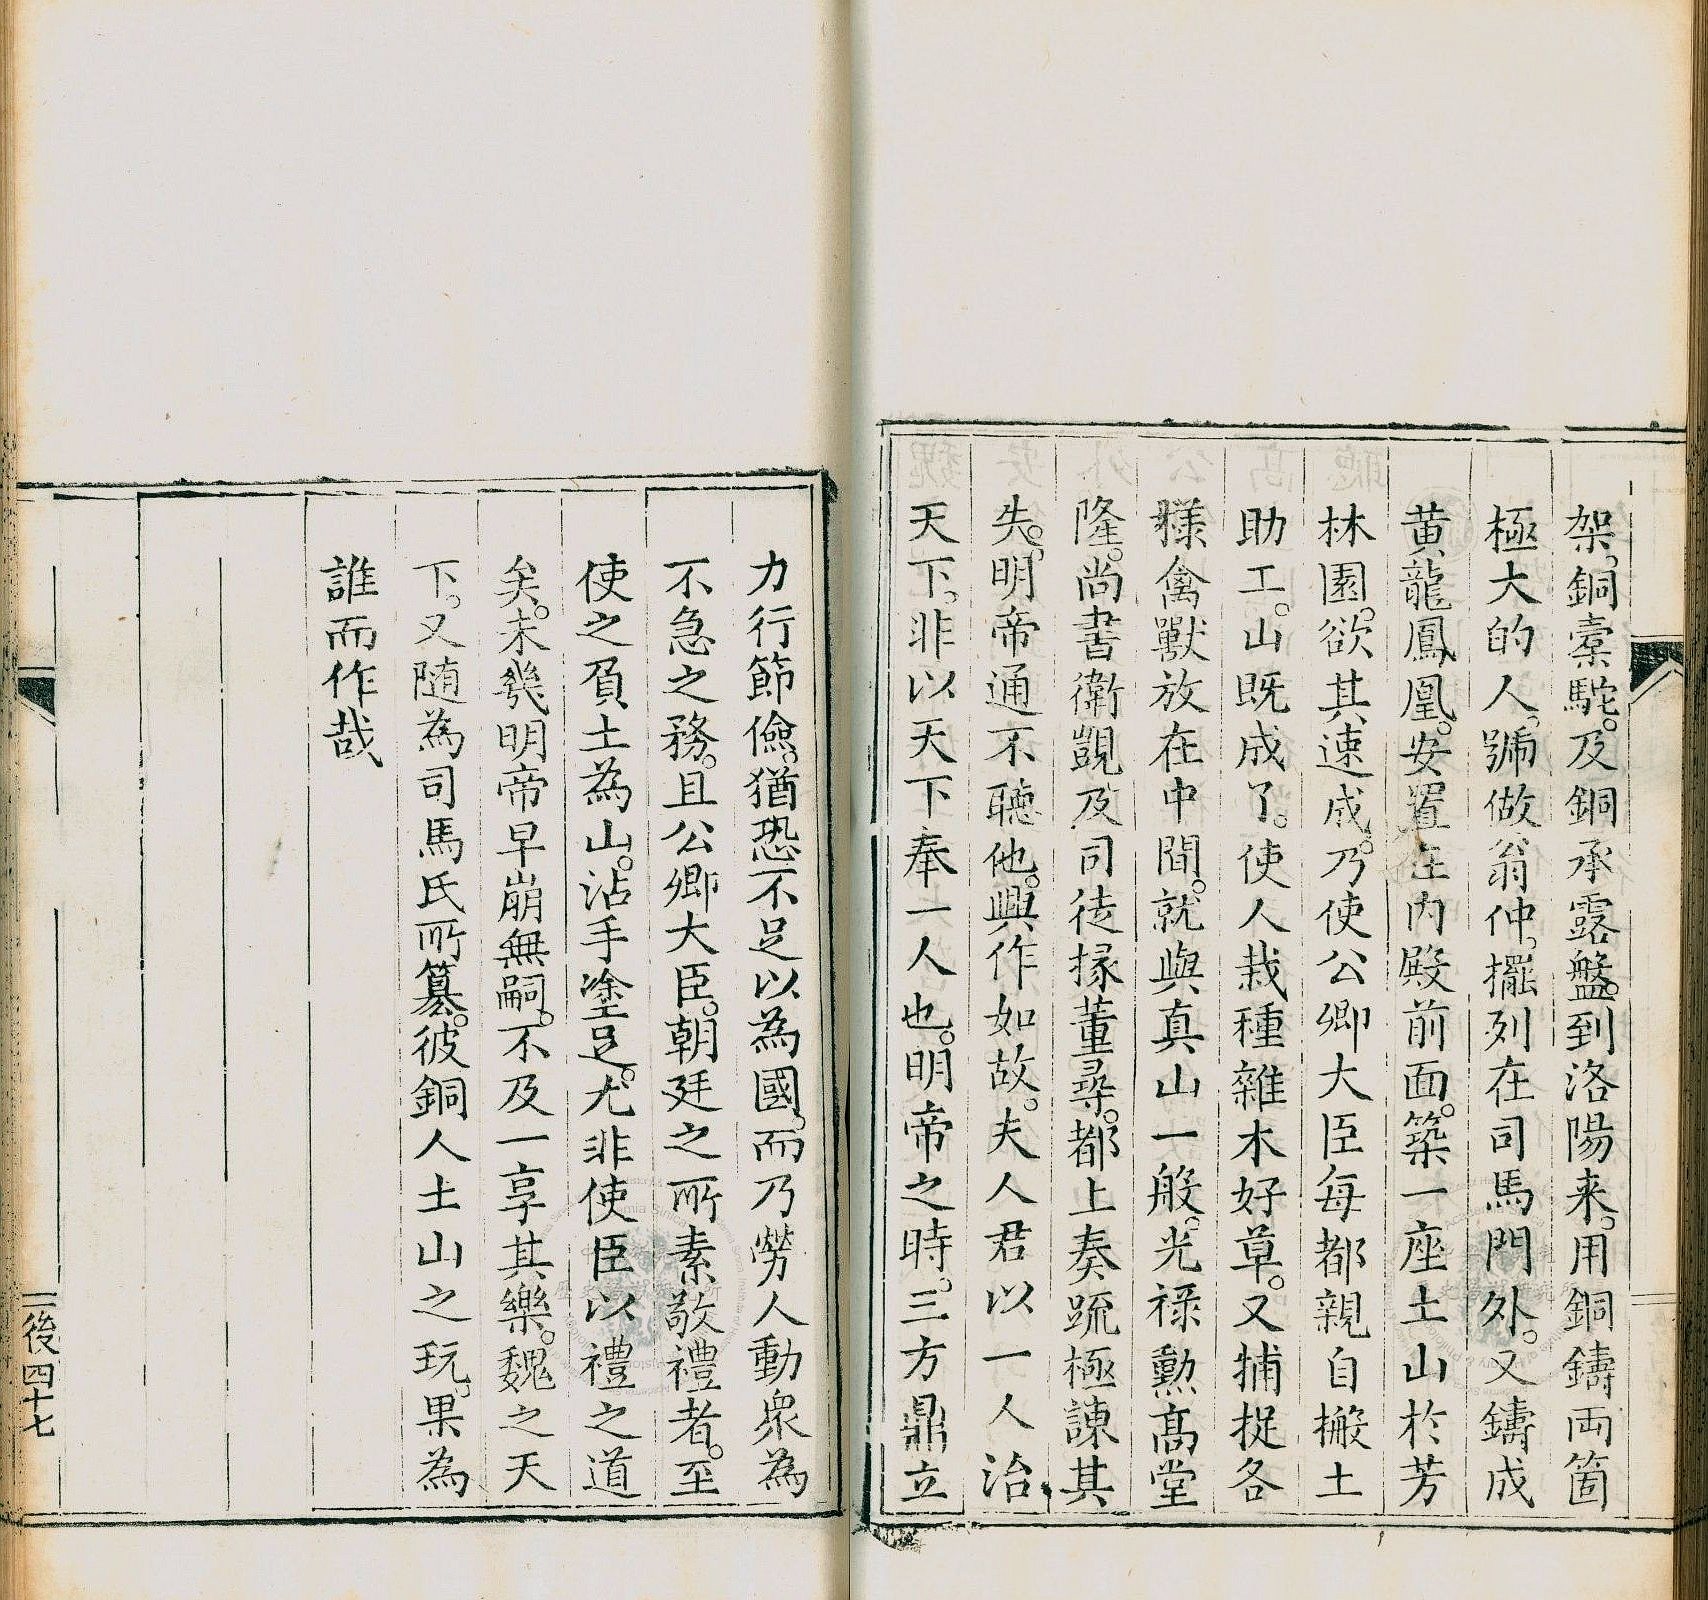 架。銅槖駝。及銅承露盤。到洛陽来。用銅鑄両箇
極大的人。號做翁仲。擺列在司馬門外。又鑄成
黄龍鳳凰。安置在内殿前面。築一座土山於芳
林園。欲其速成。乃使公卿大臣每都親自搬土
助工。山既成了。使人栽種雜木好草。又捕捉各
樣禽獸放在中間。就與真山一般。光祿勲髙堂
隆。尚書衛覬及司徒掾董尋。都上奏疏極諫其
失。明帝通不聽他。興作如故。夫人君以一人治
天下。非以天下奉一人也。明帝之時。三方鼎立
力行節儉。猶恐不足以為國。而乃勞人動衆為
不急之務。且公卿大臣。朝廷之所素敬禮者。至
使之負土為山。沾手塗足。尤非使臣以禮之道
矣。未幾明帝早崩無嗣。不及一享其樂。魏之天
下。又随為司馬氏所簒。彼銅人土山之玩。果為
誰而作哉
後四十七